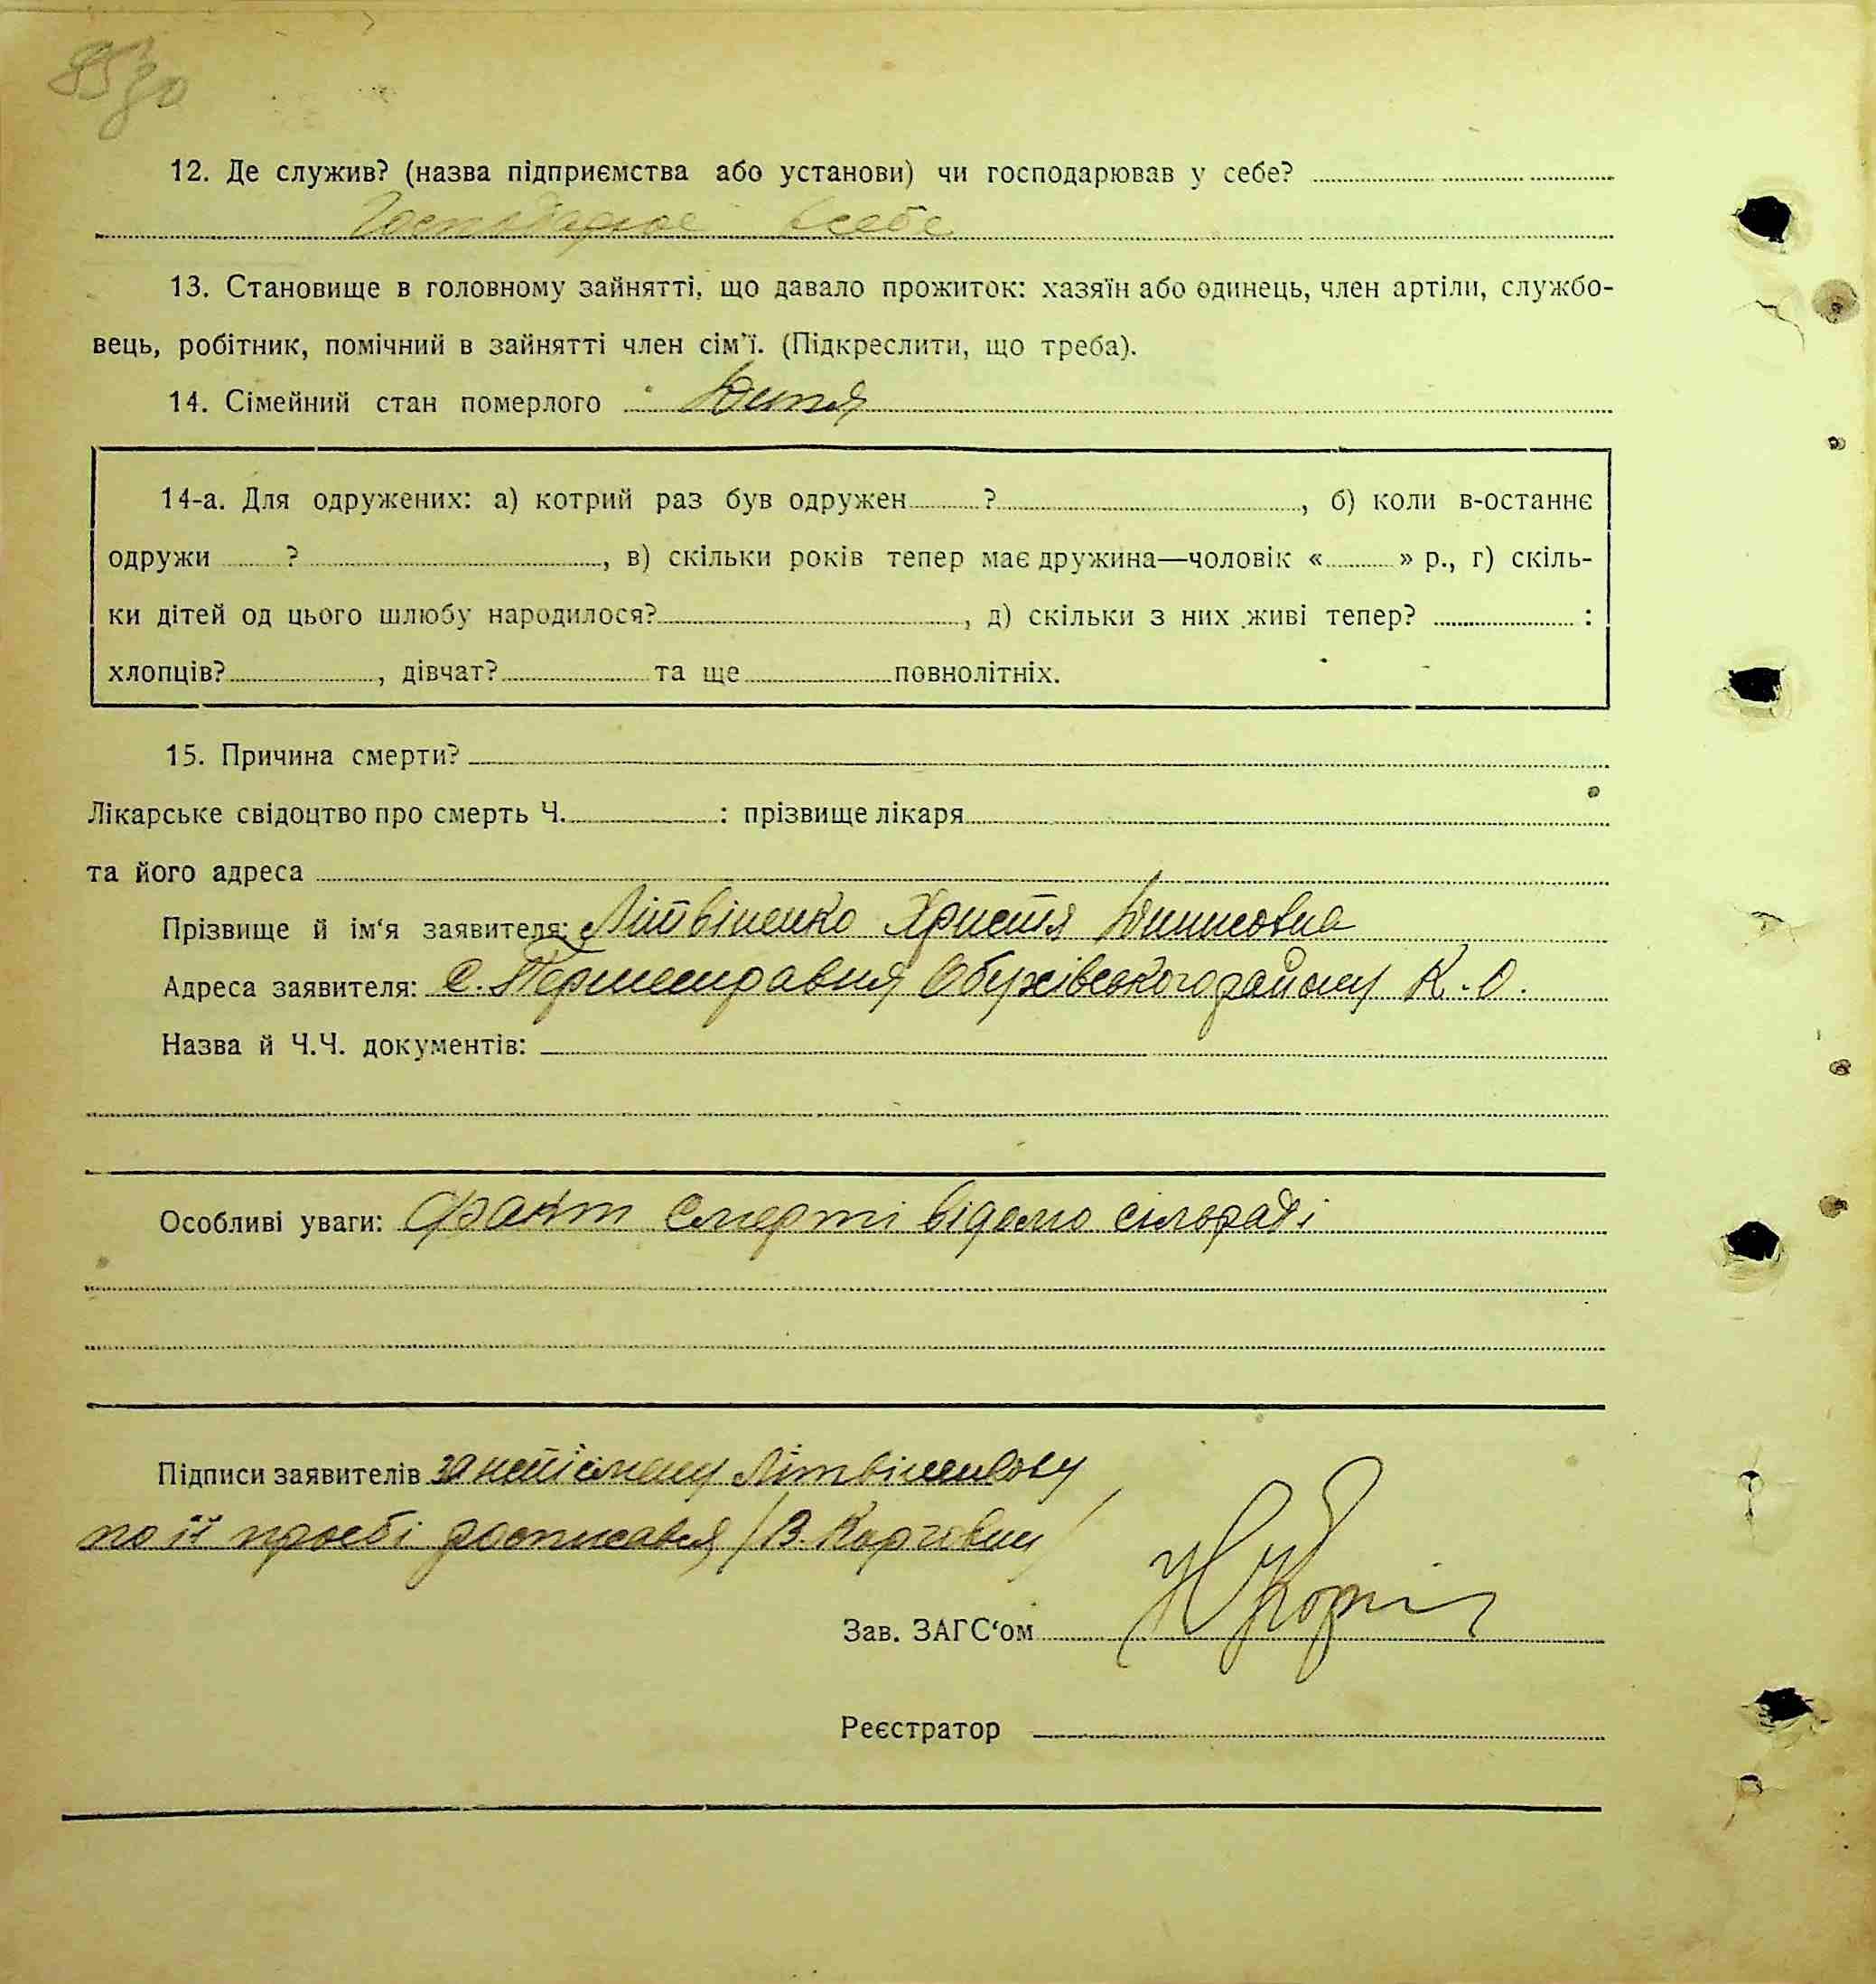 12. Де служив? (назва підприємства або установи) чи господарював у себе?
Господарює в себе
13. Становище в головному зайнятті, що давало прожиток: хазяїн або одинець, член артіли, службо-
вець, робітник, помічний в зайнятті член сім'ї. (Підкреслити, що треба).
14. Сімейний стан померлого Дитя
14-а. Для одружених: а) котрий раз був одружен ?, б) коли в-останнє
одружи ?, в) скільки років тепер має дружина—чоловік « » р., г) скіль-
ки дітей од цього шлюбу народилося?, д) скільки з них живі тепер? :
хлопців?, дівчат? та ще повнолітніх.
15. Причина смерти?
Лікарське свідоцтво про смерть Ч. : прізвище лікаря
та його адреса
Прізвище й ім'я заявителя: Літвіненко Христя Денисовна
Адреса заявителя: с. Перегерадівка Обухівського району К. О.
Назва й Ч.Ч. документів:
Особливі уваги: Факт смерти відомо сільраді
Підписи заявителів за неписьмену Літвіненкову
по її прозьбі росписався /В.
Зав. ЗАГС'ом
Реєстратор